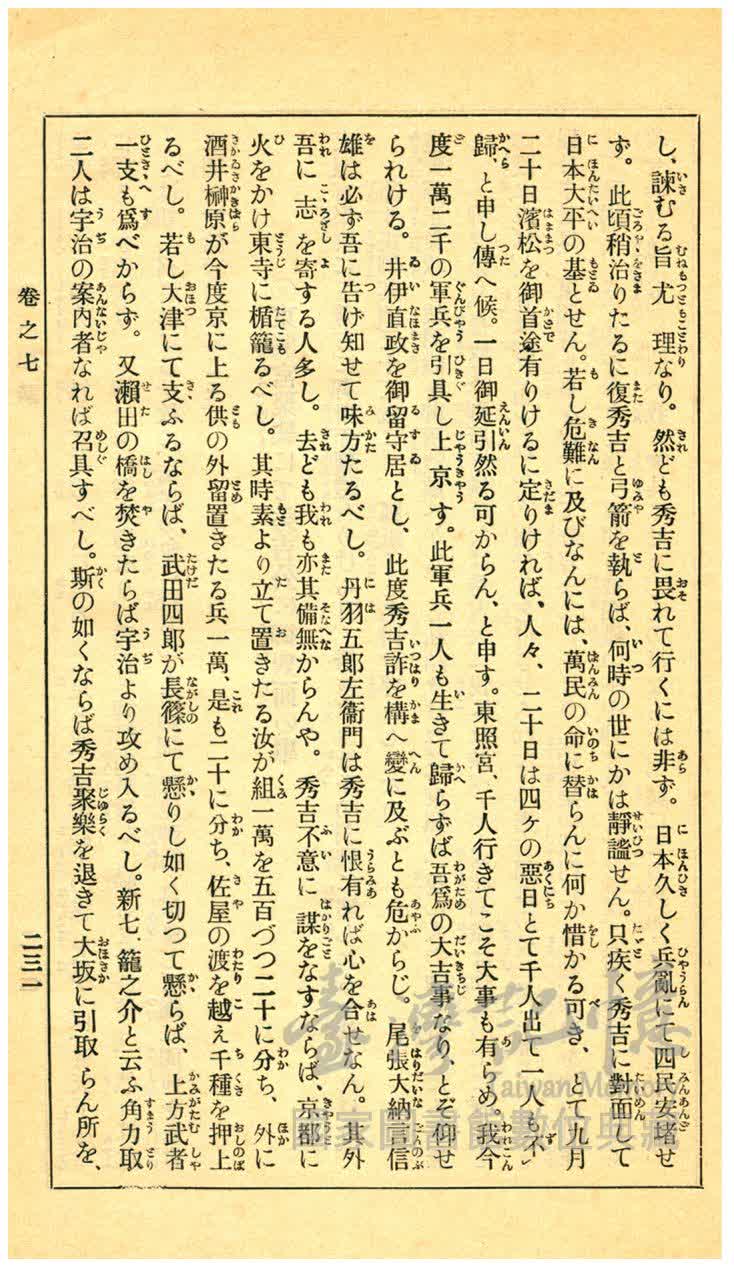 し、諫むる旨尤理なり。然ども秀吉に畏れて行くには非ず。日本久しく兵亂にて四民安堵せ
ず。此頃稍治りたるに復秀吉と弓箭を執らば、何時の世にかは靜謐せん。只疾く秀吉に對面して
日本太平の基とせん。若し危難に及びなんには、萬民の命に替らんに何か惜かる可き、とて九月
二十日濱松を御首途有りけるに定りければ、人々、二十日は四ケの惡日とて千人出て一人も不
歸、と申し傳へ候。一日御延引然る可からん、と申す。東照宮、千人行きてこそ大事も有らめ。我今
度一萬二千の軍兵を引具し上京す。此軍兵一人も生きて歸らずば吾爲の大吉事なり、とぞ仰せ
られける。井伊直政を御留守居とし、此度秀吉詐を構へ變に及ぶとも危からじ。尾張大納言信
雄は必ず吾に告げ知せて味方たるべし。丹羽五郎左衞門は秀吉に恨有れば心を合せなん。其外
吾に志を寄する人多し。去ども我も亦其備無からんや。秀吉不意に謀をなすならば、京都に
火をかけ東寺に楯籠るべし。其時素より立て置きたる汝が組一萬を五百づつ二十に分ち、外に
酒井榊原が今度京に上る供の外留置きたる兵一萬、是も二十に分ち、佐屋の渡を越え千種を押上
るべし。若し大津にて支ふるならば、武田四郎が長篠にて懸りし如く切つて懸らば、上方武者
一支も爲べからず。又瀬田の橋を焚きたらば宇治より攻め入るべし。新七籠之介と云ふ角力取
二人は宇治の案内者なれば召具すべし。斯の如くならば秀吉聚樂を退きて大坂に引取らん所を、
卷之七
二三一
臺灣記憶
Taiwan Memory
國家圖書館數位典藏